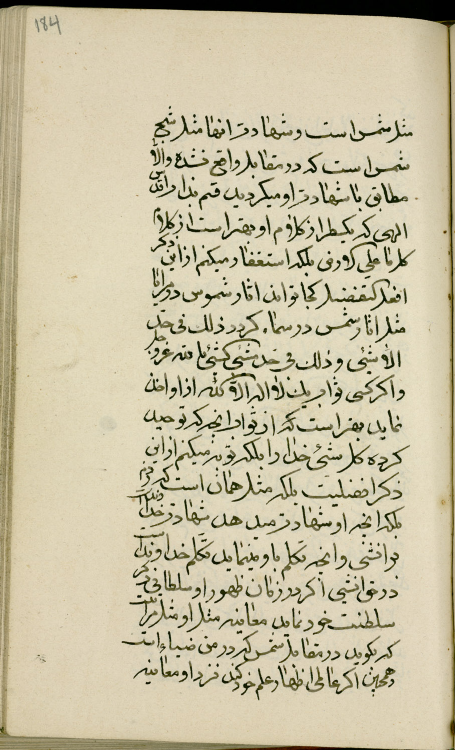 184
مثل شمس است و شهادت انها مثل شبح
شمس است که در مقابل واقع شده والا
مطابق با شهادت او میکردید قسم بذات اقدس
الهی که یکسطر از کلام او بهتر است از کلام
کل ما علی الارض بلکه استغفار میکنم از این ذکر
افعل تفضیل کجا تواند اثار شموس در مرایا
مثل اثار شمس در سماء کردد ذلک فی حد
الا شیئی و ذلک فی حد شیئی کشئ بالله عز و جل
و اکر کسی ثواب یک لا اله الا الله از او اخذ
نماید بهتر است از ثواب انچه که توحید
کرده کل شیئ خدا را بلکه توبه میکنم از این
ذکر افضلیت بلکه مثل همان است که
بلکه انچه او شهادت میدهد شهادت خداست
بر انشیئ و انچه تکلم باو مینماید تکلم خداوند است
در حق انشیئ اکر در زمان ظهور او سلطانی ذکر
سلطنت خود نماید معاینه مثل او مثل مرات است
که بکوید در مقابل شمس که در من ضیاء است
و همچنین اکر عالمی اظهار علم خود کند نزد او معاینه